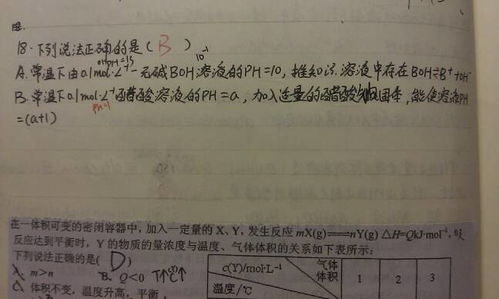 18.下列说法正确的是(B)
A.常温下由0.1mol·L⁻¹一元碱BOH溶液的PH=10,推知溶液中存在BOH⇌B⁺+OH⁻
B.常温下0.1mol·L⁻¹醋酸溶液的PH=a,加入适量的醋酸钠固体,能使溶液PH
=(a+1)
在一体积可变的密闭容器中,加入一定量的X、Y,发生反应mX(g)══nY(g) △H=QkJ·mol⁻¹,
反应达到平衡时,Y的物质的量浓度与温度、气体体积的关系如下表所示:
下列说法正确的是(D)
A. m>n B. Q<0 T↑C↑
体积不变,温度升高,平衡
c(Y)/mol·L 气体体积 1 2 3
温度/℃